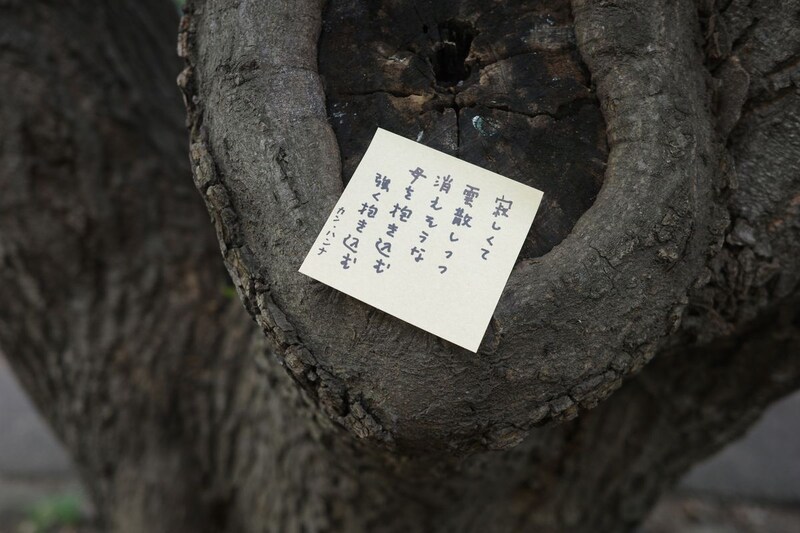 寂しくて
雲散しつつ
消えそうな
母を抱き込む
強く抱き込む
カン・ハンナ